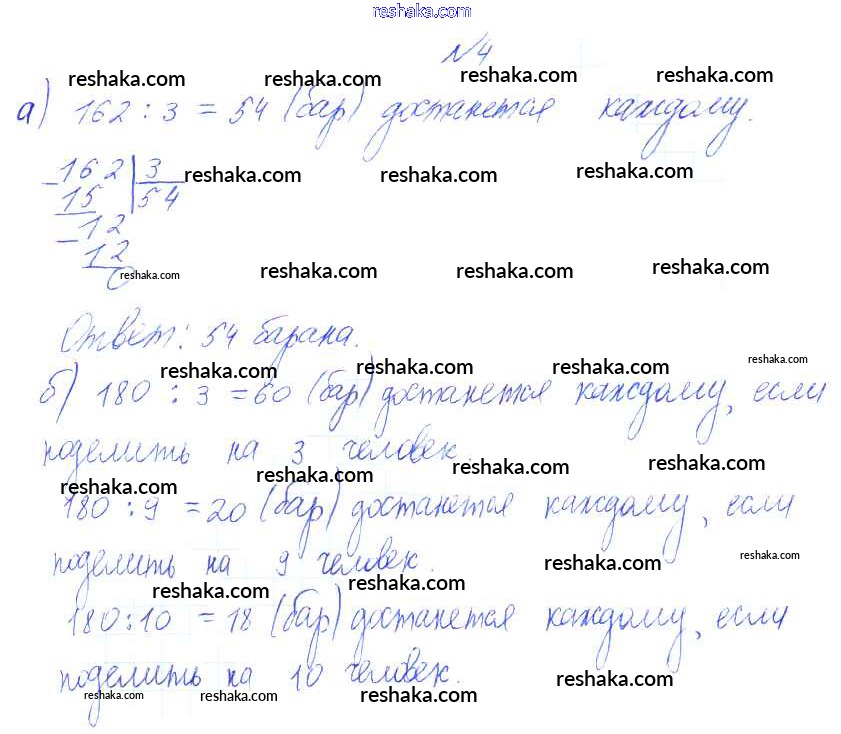 reshaka.com
№4
reshaka.com reshaka.com reshaka.com reshaka.com
а) 162 : 3 = 54 (бар) достанется каждому.
162 3
reshaka.com reshaka.com reshaka.com
15 54
12
12
0
reshaka.com reshaka.com reshaka.com reshaka.com
Ответ: 54 барана.
reshaka.com reshaka.com reshaka.com reshaka.com
б) 180 : 3 = 60 (бар) достанется каждому, если
поделить на 3 человек.
reshaka.com reshaka.com reshaka.com reshaka.com
180 : 9 = 20 (бар) достанется каждому, если
поделить на 9 человек.
reshaka.com reshaka.com reshaka.com reshaka.com
180 : 10 = 18 (бар) достанется каждому, если
поделить на 10 человек.
reshaka.com reshaka.com reshaka.com reshaka.com